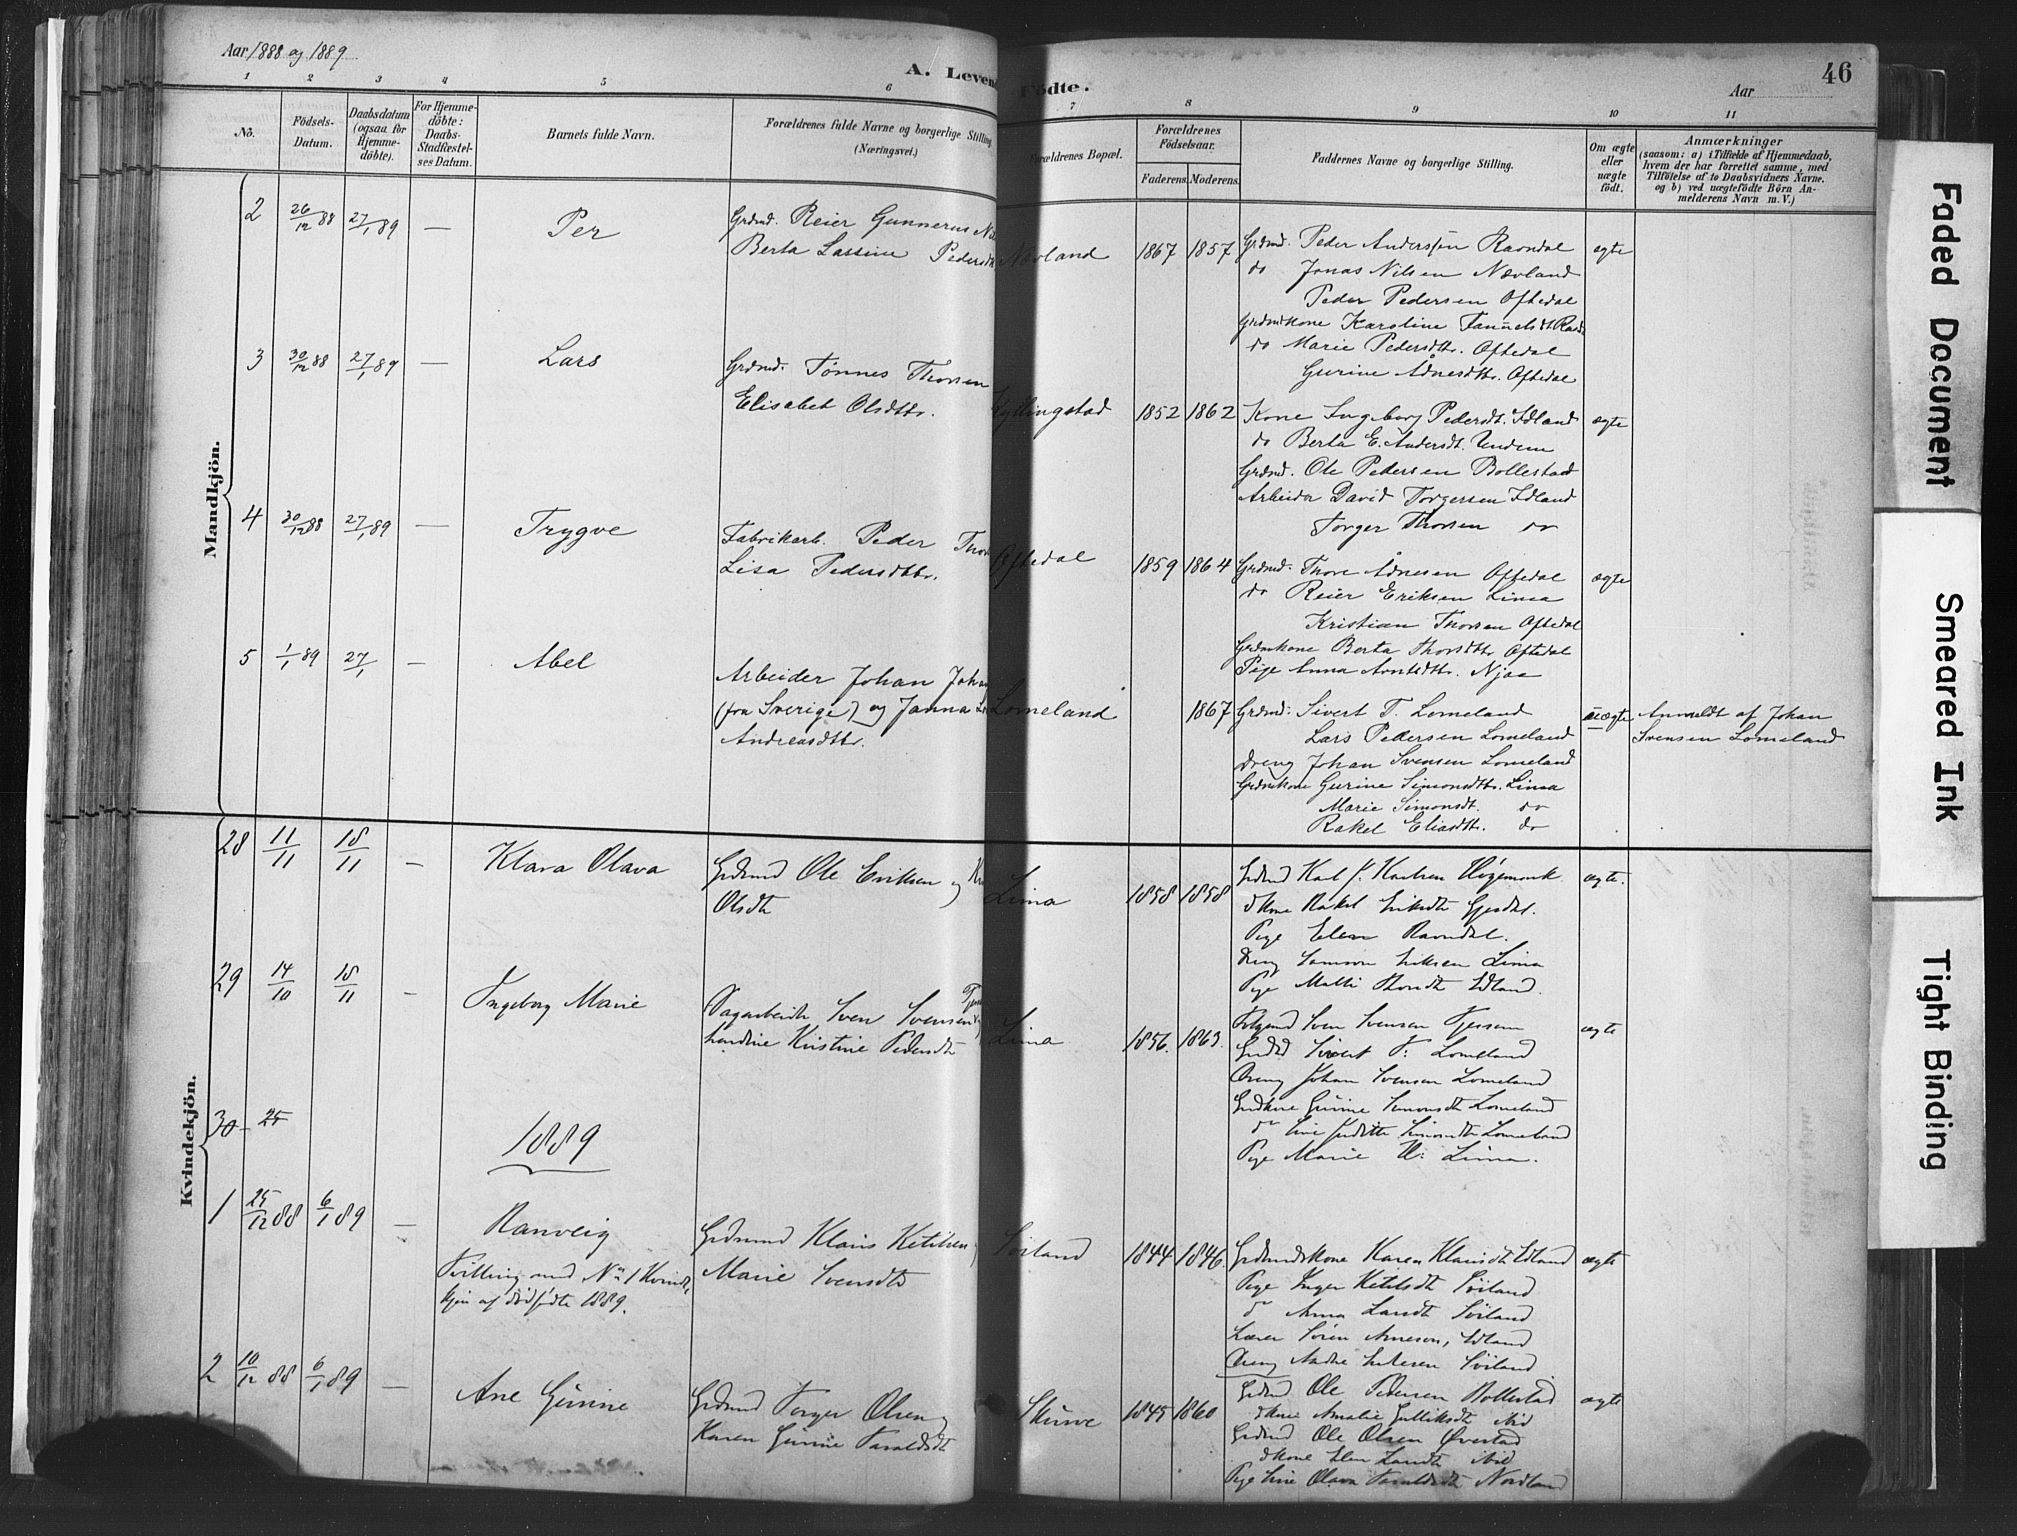 Aar 1888 og 1889
A. Leven
Födte.
Aar
46
1 2 3 4 5 6 7 8 9 10 11
No.
Födsels-
Datum.
Daabsdatum
(ogsaa for
Hjemme-
döbte).
For Hjemme-
döbte:
Daabs-
Stadfæstel-
ses Datum.
Barnets fulde Navn.
Forældrenes fulde Navne og borgerlige Stilling
(Næringsvei.)
Forældrenes Bopæl.
Forældrenes
Födselsaar.
Faderens. Moderens.
Faddernes Navne og borgerlige Stilling.
Om ægte
eller
uægte
födt.
Anmærkninger
(saasom: a) i Tilfælde af Hjemmedaab,
hvem der har forrettet samme, med
Tilföielse af to Daabsvidners Navne.
og b) ved uægtefödte Börn An-
melderens Navn m. V.)
Mandkjön.
2 26/12 88 27/1 89 — Per
Grdmd. Reier Gunnerus
Berta Lassine Pedersdtr
Nævland 1867 1857
Grdmd. Peder Anderssen Ravndal
do Jonas Nilsen Nævland
Peder Pedersen Oftedal
Grdmdkone Karoline
do Marie Pedersdtr. Oftedal
Gurine Ådnesdtr. Oftedal
ægte
3 30/12 88 27/1 89 — Lars
Grdmd. Tønnes Thorsen
Elisabet Olsdtr.
Kyllingstad 1852 1862
Kone Ingeborg Pedersdt. Idland
do Berta E. Andersdt. Undem
Grdmd. Ole Pedersen Bollestad
Arbeider David Torgersen Idland
Torger Thorsen do
ægte
4 30/12 88 27/1 89 — Trygve
Fabrikarb. Peder
Lisa Pedersdtr.
Oftedal 1859 1864
Grdmd. Thore Ådnesen Oftedal
do Reier Eriksen Lima
Kristian Thorsen Oftedal
Grdmkone Berta Thorsdtr Oftedal
Pige Anna Arntsdtr. Njaa
ægte
5 1/1 89 27/1 — Abel
Arbeider Johan
(fra Sverige) og Janna
Andreasdtr.
Lomeland 1867
Grdmd: Sivert T. Lomeland
Lars Pedersen Lomeland
dreng Johan Svensen Lomeland
Grdmkone Gurine Simonsdtr. Lima
Marie Simonsdt. do
Rakel Eliasdtr. do
uægte
Anmeldt af Johan
Svensen Lomeland
Kvindekjön.
28 11/11 18/11 — Klara Olava
Grdmd Ole Eriksen og
Olsdt
Lima 1858 1858
Rakel
Pige Elen Ravndal.
Dreng Samson Eriksen Lima
Pige Malli Thorsdt Idland.
ægte.
29 14/10 18/11 — Ingeborg Marie
Dagarbeider Sven Svensen
Kristine Pedersdt
Lima 1856. 1863.
Sven Svensen Tjessem
Sivert T: Lomeland
Dreng Johan Svensen Lomeland
Gurine Simonsdt Lomeland
Simonsdt Lomeland
Pige Marie Lima.
ægte
30 25
1889
1 25/12 88 6/1 89 — Ranveig
Tvilling med No 1 Kvinde
kjøn af dødfødte 1889.
Grdmand Klaus Ketilsen
Marie Svensdt
Söiland 1844 1846.
Grdmandskone Karen Klausdt Idland
Pige Inger Ketilsdt Söiland
do Anna Larsdt Söiland
Lærer Sören Arneson, Idland
Dreng Söiland
ægte
2 10/12 88 6/1 89 — Ane Gurine
Grdmd Torger Olsen
Karen Gurine Taraldsdt
Skurve 1845 1860
Grdmd Ole Pedersen Bollestad
Amalie Gulliksdt ibid
Grdmd Ole Olsen Øvestad
dkone Elen Larsdt ibid
Pige Olava Taraldsdt Nordland
ægte
Faded Document
Smeared Ink
Tight Binding